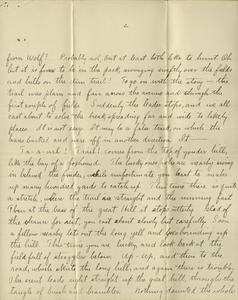 2.
from Wolf? Probably not, but at least both like to hunt. Oh
but it is fun to be in the pack, swinging over the fields
and hills on the dim trail! To go on with the story — the
trail was plain and fair across the avenue and through the
first couple of fields. Suddenly the leader stops, and we all
cast about to solve the break, spreading far and wide to likely
places. It is not easy. It may be a false track, on which the
hares doubled and were off in another direction.
Ta-a-ark! Tarak! comes from the top of yonder hill,
like the bay of a foxhound. The lucky ones who are nearby swing
in behind the finder, while unfortunate you have to make
up many hundred yards to catch up. Then there is quite
a stretch, where the trail is straight and the running fair.
Then at the base of the great hill it stops utterly. Out of
the chance for dirt, you cast about slowly but carefully. Soon
a fellow nearby lets out the long yell and goes bounding up
the hill. This time you are lucky and look back at the
field full of stragglers below. Up, up, and then to the
road, which skirts the long hill, and again there is trouble.
The scent leads right straight up the great hill, through the
tangle of brush and brambles. Nothing daunted the whole